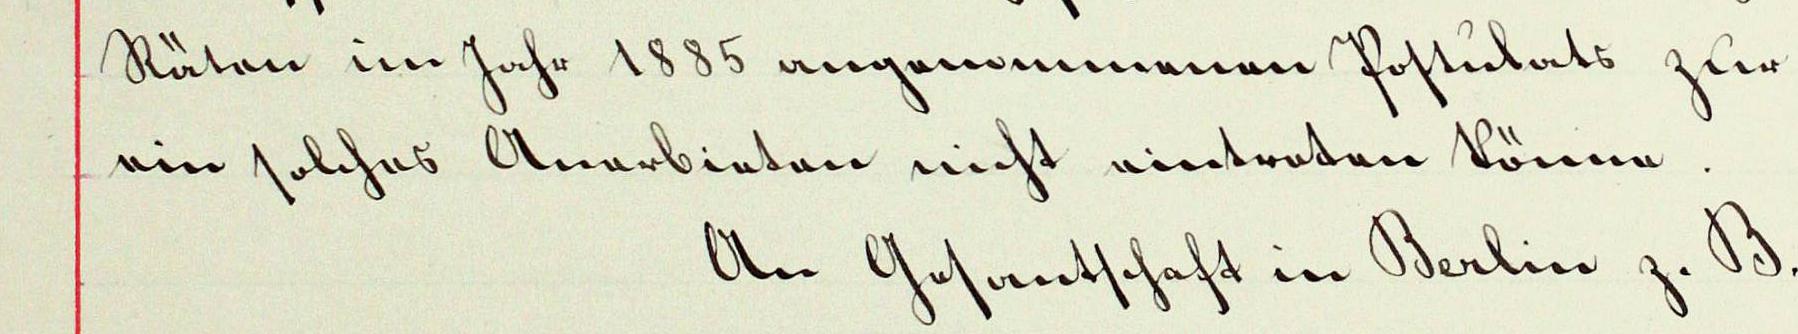 Räten im Jahr 1885 angenommenen Postulats zur
ein solches Anerbieten nicht eintreten könne.
An Gesantschaft in Berlin z. B.